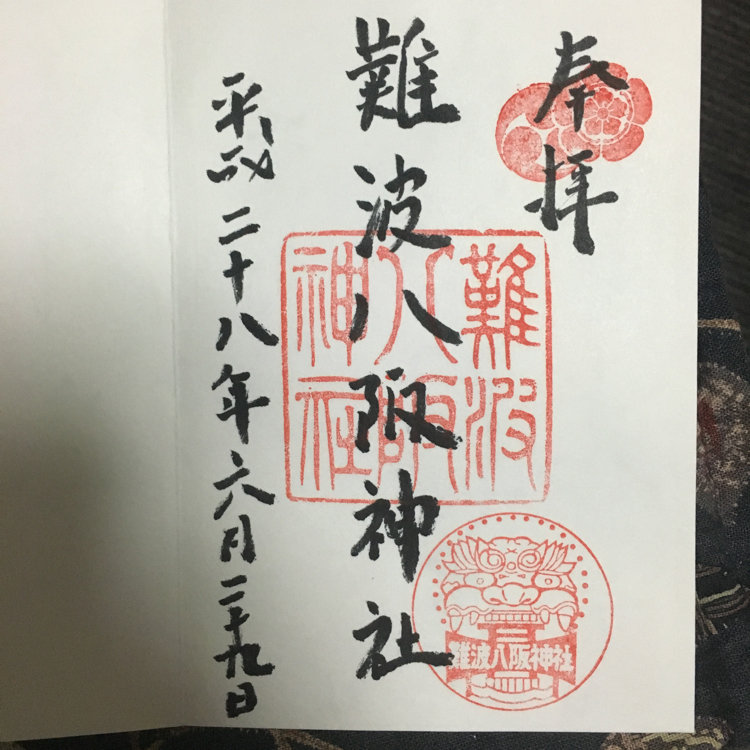 奉拝
難波八阪神社
平成二十八年六月二十九日
難波
八阪
神社
難波八阪神社